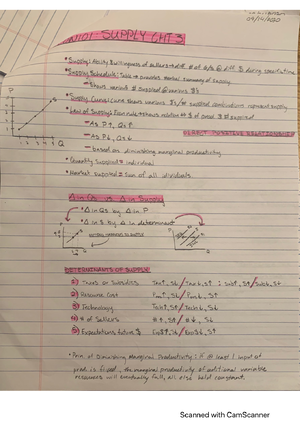 09/14/2020
SUPPLY CHT 3
• Supply: Ability & willingness of sellers to sell diff # of G/S @ diff $ during specific time
• Supply Schedule: Table → provides verbal summary of supply
shows various # supplied @ various $'s
• Supply Curve: curve shows various $'s/# supplied combinations represent supply
• Law of Supply: shows relation b/t $ of good & # supplied
- As P↑, Qs↑
DIRECT POSITIVE RELATIONSHIP
- As P↓, Qs↓
- based on diminishing marginal productivity
• Quantity supplied = individual
• Market supplied = sum of all dividuals
P
Q
Δ in Qs vs Δ in Supply
• Δ in Qs by Δ in P
• Δ in S by Δ in determinant
DETERMINANTS OF SUPPLY
1) Taxes or Subsidies
2) Resource Cost
3) Technology Tech↑, S↑ / Tech↓, S↓
4) # of Sellers #↑, S↑ / #↓, S↓
5) Expectations future $
• Prin. of Diminishing Marginal Productivity: if at least 1 input of
prod. is fixed, the marginal productivity of additional variable
resources will eventually fall, all else held constant.
Scanned with CamScanner